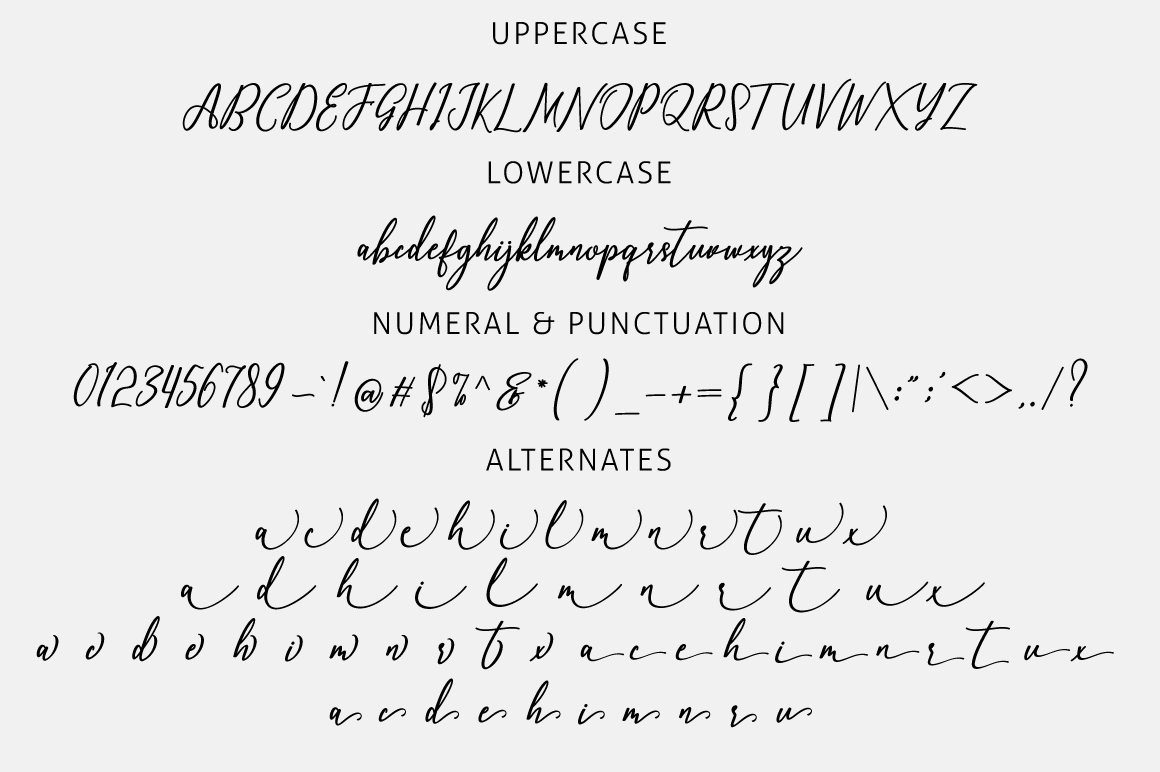 UPPERCASE
ABCDEFGHIJKLMNOPQRSTUVWXYZ
LOWERCASE
abcdefghijklmnopqrstuvwxyz
NUMERAL & PUNCTUATION
0123456789~`!@#$%^&*()_-+={}[]|\:";'<>,./?
ALTERNATES
a c d e h i l m n r t u x
a d h i l m n r t u x
a c d e h i m n r t x a c e h i m n r t u x
a c d e h i m n r u